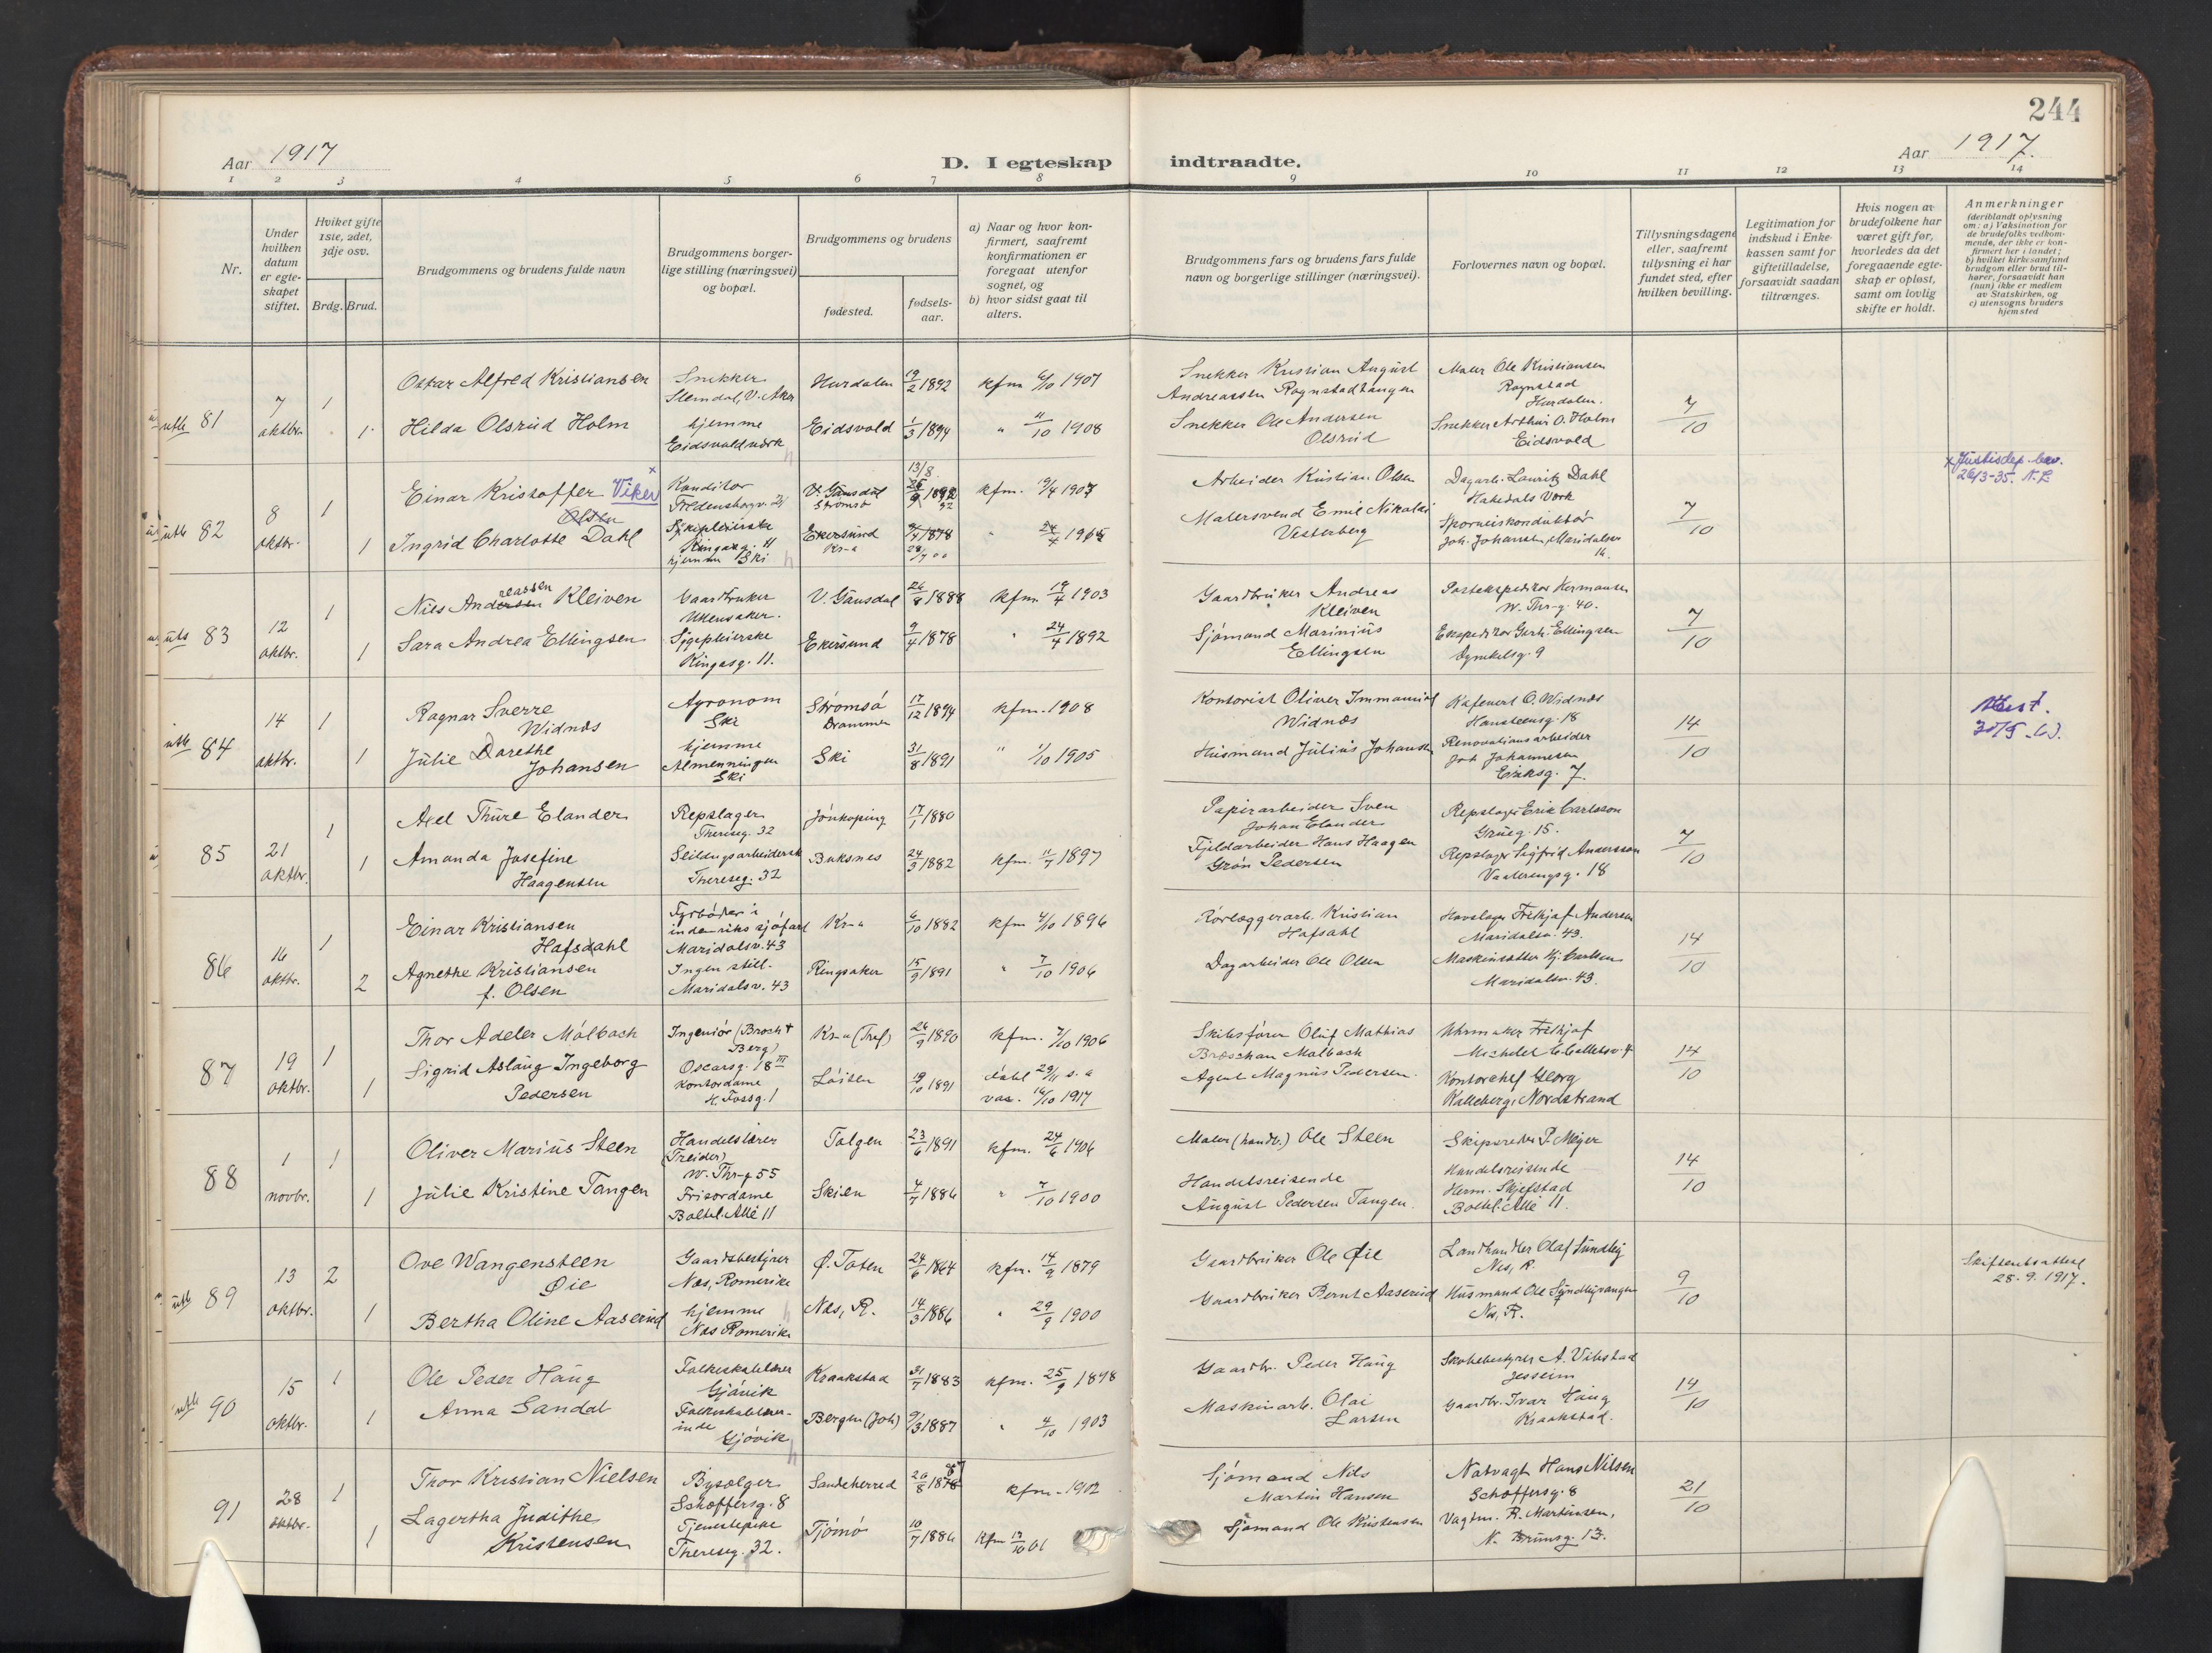 244
Aar 1917
D. I egteskap indtraadte.
Aar 1917.
1 2 3 4 5 6 7 8 9 10 11 12 13 14
Nr.
Under hvilken datum er egteskapet stiftet.
Hviket gifte 1ste, 2det, 3dje osv.
Brdg. Brud.
Brudgommens og brudens fulde navn
Brudgommens borgerlige stilling (næringsvei) og bopæl.
Brudgommens og brudens
fødested.
fødselsaar.
a) Naar og hvor konfirmert, saafremt konfirmationen er foregaat utenfor sognet, og
b) hvor sidst gaat til alters.
Brudgommens fars og brudens fars fulde navn og borgerlige stillinger (næringsvei).
Forlovernes navn og bopæl.
Tillysningsdagene eller, saafremt tillysning ei har fundet sted, efter hvilken bevilling.
Legitimation for indskud i Enkekassen samt for giftetilladelse, forsaavidt saadan tiltrænges.
Hvis nogen av brudefolkene har været gift før, hvorledes da det foregaaende egteskap er opløst, samt om lovlig skifte er holdt.
Anmerkninger (deriblandt oplysning om: a) Vaksination for de brudefolks vedkommende, der ikke er konfirmert her i landet; b) hvilket kirkesamfund brudgom eller brud tilhører, forsaavidt han (hun) ikke er medlem av Statskirken, og c) utensogns bruders hjemsted
utb 81
7 oktbr.
1
1
Oskar Alfred Kristiansen
Snekker
Slemdal, V. Aker
Hurdalen
19/2 1892
kfm 6/10 1907
Snekker Kristian August
Andreassen Rognstadtangen
Maler Ole Kristiansen
Rognstad
Hurdalen.
7/10
Hilda Olsrud Holm
hjemme
Eidsvoldværk
Eidsvold
1/3 1894
" 11/10 1908
Snekker Ole Andersen
Olsrud
Snekker Arthur O. Holm
Eidsvold
utb 82
8 oktbr.
1
1
Einar Kristoffer Viker
Olsen
Konditor
Fredensborgv.
V. Gausdal
Strømsø
13/8
1892
kfm. 1907
Arbeider Kristian Olsen
Dagarb. Lauritz Dahl
Hakedals Værk
7/10
x Justisdep. bev.
26/3-35. N. E.
Ingrid Charlotte Dahl
Sykepleierske
Ringasg. 11
hjemme Ski
Ekersund
Kr-a
9/4 1878
" 24/4
Malersvend Emil Nikolai
Vesterberg
Sporveiskonduktør
Joh. Johansen, Maridalsv.
16.
uts 83
12 oktbr.
1
1
Nils Andersen Kleiven
reassen
Gaardbruker
Ullensaker.
V. Gausdal
26/8 1888
kfm 19/4 1903
Gaardbruker Andreas
Kleiven
Postekspeditør Hermansen
W. Thr-g. 40.
7/10
Sara Andrea Ellingsen
Sygepleierske
Ringasg. 11.
Ekersund
9/4 1878
" 24/4 1892
Sjømand Marinius
Ellingsen
Ekspeditør Gerh. Ellingsen
9
utb 84
14 oktbr.
1
1
Ragnar Sverre
Widnæs
Agronom
Ski
Strømsø
Drammen
17/12 1894
kfm. 1908
Kontorist Oliver Immanuel
Widnæs
Kafevert O. Widnæs
Hausteensg. 18
14/10
Julie Dorethe
Johansen
hjemme
Almenningen
Ski
Ski
31/8 1891
" 1/10 1905
Husmand Julius Johansen
Renovationsarbeider
Joh Johannesen
Eriksg. 7.
85
21 oktbr.
1
1
Axel Thure Elander
Repslager
Thereseg. 32
Jønkøping
17/1 1880
Papirarbeider Sven
Johan Elander
Repslager Erik Carlsson
Grueg. 15.
7/10
Amanda Josefine
Haagensen
Seildugsarbeiderske
Thereseg. 32
Buksnes
24/3 1882
kfm. 11/7 1897
Fjeldarbeider Hans Haagen
Grøn Pedersen
Repslager Sigfrid Andersson
Vaalerengsg. 18
86
16 oktbr.
1
2
Einar Kristiansen
Hafsdahl
Fyrbøter i
indenriks sjøfart
Maridalsv. 43
Kr-a
6/10 1882
kfm 4/10 1896
Rørlæggerarb. Kristian
Hafsahl
Hovslager Fridhjof Andersen
Maridalsv. 43.
14/10
Agnethe Kristiansen
f. Olsen
Ingen still.
Maridalsv. 43
Ringsaker
15/9 1891
" 7/10 1906
Dagarbeider Ole Olsen
Maskinsætter Hj. Carlsen
Maridalsv. 43.
87
19 oktbr.
1
1
Thor Adeler Mølbach
Ingeniør (Broch &
Berg)
Oscarsg. 18 III
Kr-a (Tref)
26/9 1890
kfm. 7/10 1906
Skibsfører Oluf Mathias
Mølbach
Uhrmaker Fridhjof
Michelet
14/10
Sigrid Aslaug Ingeborg
Pedersen
Kontordame
H. Fossg. 1
Løiten
19/10 1891
døbt 29/11 s. a
vac. 16/10 1917
Agent Magnus Pedersen.
Kontorchef Georg
Kalleberg, Nordstrand
88
1 novbr.
1
1
Oliver Marius Steen
Handelslærer
(Treider)
W. Thr-g 55
Tolgen
23/6 1891
kfm. 24/6 1906
Maler (handv.) Ole Steen
Skipsreder P. Meyer
14/10
Julie Kristine Tangen
Frisørdame
Boltel. Allé 11
Skien
4/7 1886
" 7/10 1900
Handelsreisende
August Pedersen Tangen.
Handelsreisende
Herm. Skjefstad
Boltel. Alle 11.
utb 89
13 oktbr.
2
1
Ove Wangensteen
Øie
Gaardsbestyrer
Næs, Romerike
Ø. Toten
24/6 1864
kfm. 14/9 1879
Gaardbruker Ole Øie
Landhandler Olaf Sundby
Næs, R.
9/10
Skifteretsattest
28. 9. 1917.
Bertha Oline Aaserud
hjemme
Næs Romerike
Næs, R.
14/3 1886
" 29/9 1900
Gaardbruker Bernt Aaserud
Husmand Ole Sundbyvangen
Næs, R.
utb 90
15 oktbr.
1
1
Ole Peder Haug
Folkeskolelærer
Gjøvik
Kraakstad
31/7 1883
kfm. 25/9 1898
Gaardbr. Peder Haug
Skolebestyrer A. Vibstad
Jessheim
14/10
Anna Sandal
Folkeskolelærer-
inde
Gjøvik
Bergen (Joh)
9/3 1887
" 4/10 1903
Maskinarb. Olai
Larsen
Gaardbr. Ivar Haug
Kraakstad.
91
28 oktbr.
1
1
Thor Kristian Nielsen
Bysælger
Schøffersg. 8
Sandeherred
26/8
kfm. 1902
Sjømand Nils
Martin Hansen
Natvagt Hans Nilsen
Schøffersg. 8
21/10
Lagertha Judithe
Kristensen
Tjenestepike
Thereseg. 32.
Tjømø
10/7 1886
Kfm 13/10 01
Sjømand Ole Kristensen
Vagtm. R. Martinsen,
N. Brunsg. 13.